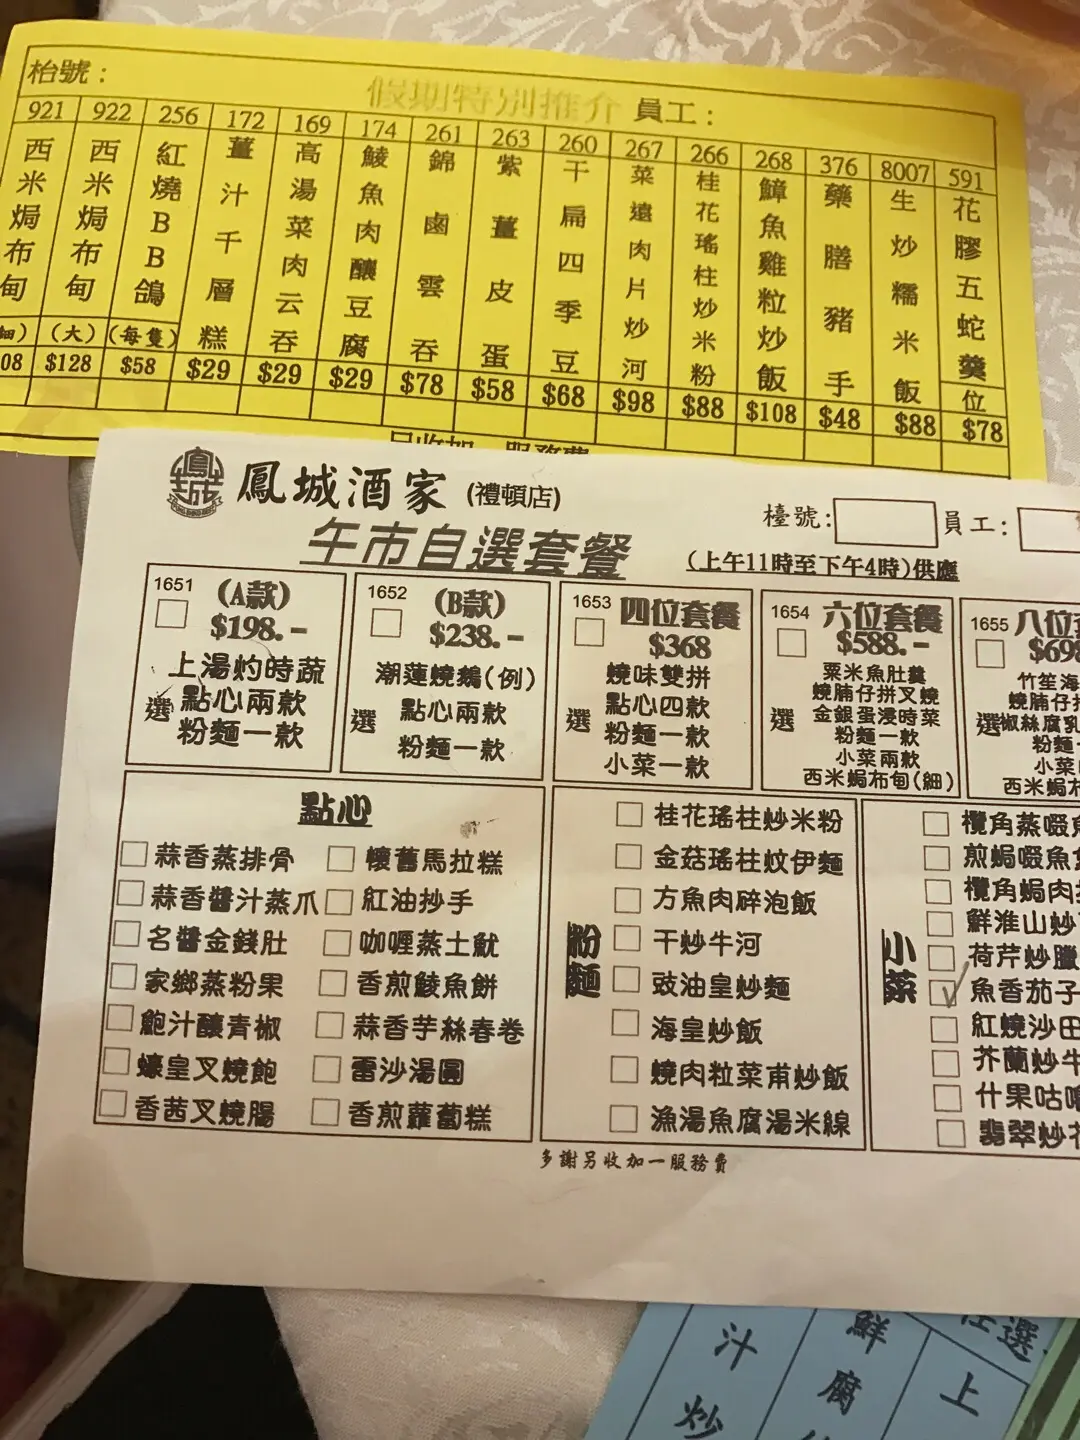 枱號：
假期特別推介 員工：
921 922 256 172 169 174 261 263 260 267 266 268 376 8007 591
西米焗布甸
西米焗布甸（大）
紅燒BB鴿（每隻）
薑汁千層糕
高湯菜肉云吞
鯪魚肉釀豆腐
錦鹵雲吞
紫薑皮蛋
干扁四季豆
菜遠肉片炒河
桂花瑤柱炒米粉
鱆魚雞粒炒飯
藥膳豬手
生炒糯米飯
花膠五蛇羹位
08 $128 $58 $29 $29 $29 $78 $58 $68 $98 $88 $108 $48 $88 $78
鳳城酒家 (禮頓店)
檯號: 員工:
午市自選套餐 (上午11時至下午4時)供應
1651 (A款)
$198.-
選
上湯灼時蔬
點心兩款
粉麵一款
1652 (B款)
$238.-
選
潮蓮燒鵝(例)
點心兩款
粉麵一款
1653 四位套餐
$368
選
燒味雙拼
點心四款
粉麵一款
小菜一款
1654 六位套餐
$588.-
選
粟米魚肚羹
燒腩仔拼叉燒
金銀蛋浸時菜
粉麵一款
小菜兩款
西米焗布甸(細)
1655 八位套
$698
選
竹笙海
燒腩仔拼
椒絲腐乳
粉麵一
小菜
西米焗布
點心
蒜香蒸排骨 懷舊馬拉糕
蒜香醬汁蒸爪 紅油抄手
名醬金錢肚 咖喱蒸土魷
家鄉蒸粉果 香煎鯪魚餅
鮑汁釀青椒 蒜香芋絲春卷
蠔皇叉燒飽 雷沙湯圓
香茜叉燒腸 香煎蘿蔔糕
粉麵
桂花瑤柱炒米粉
金菇瑤柱炆伊麵
方魚肉碎泡飯
干炒牛河
豉油皇炒麵
海皇炒飯
燒肉粒菜甫炒飯
漁湯魚腐湯米線
小菜
欖角蒸啜魚
煎焗啜魚
欖角焗肉
鮮淮山炒
荷芹炒臘
魚香茄子
紅燒沙田
芥蘭炒牛
什果咕嚕
翡翠炒花
多謝另收加一服務費
汁炒
鮮腐
上
選